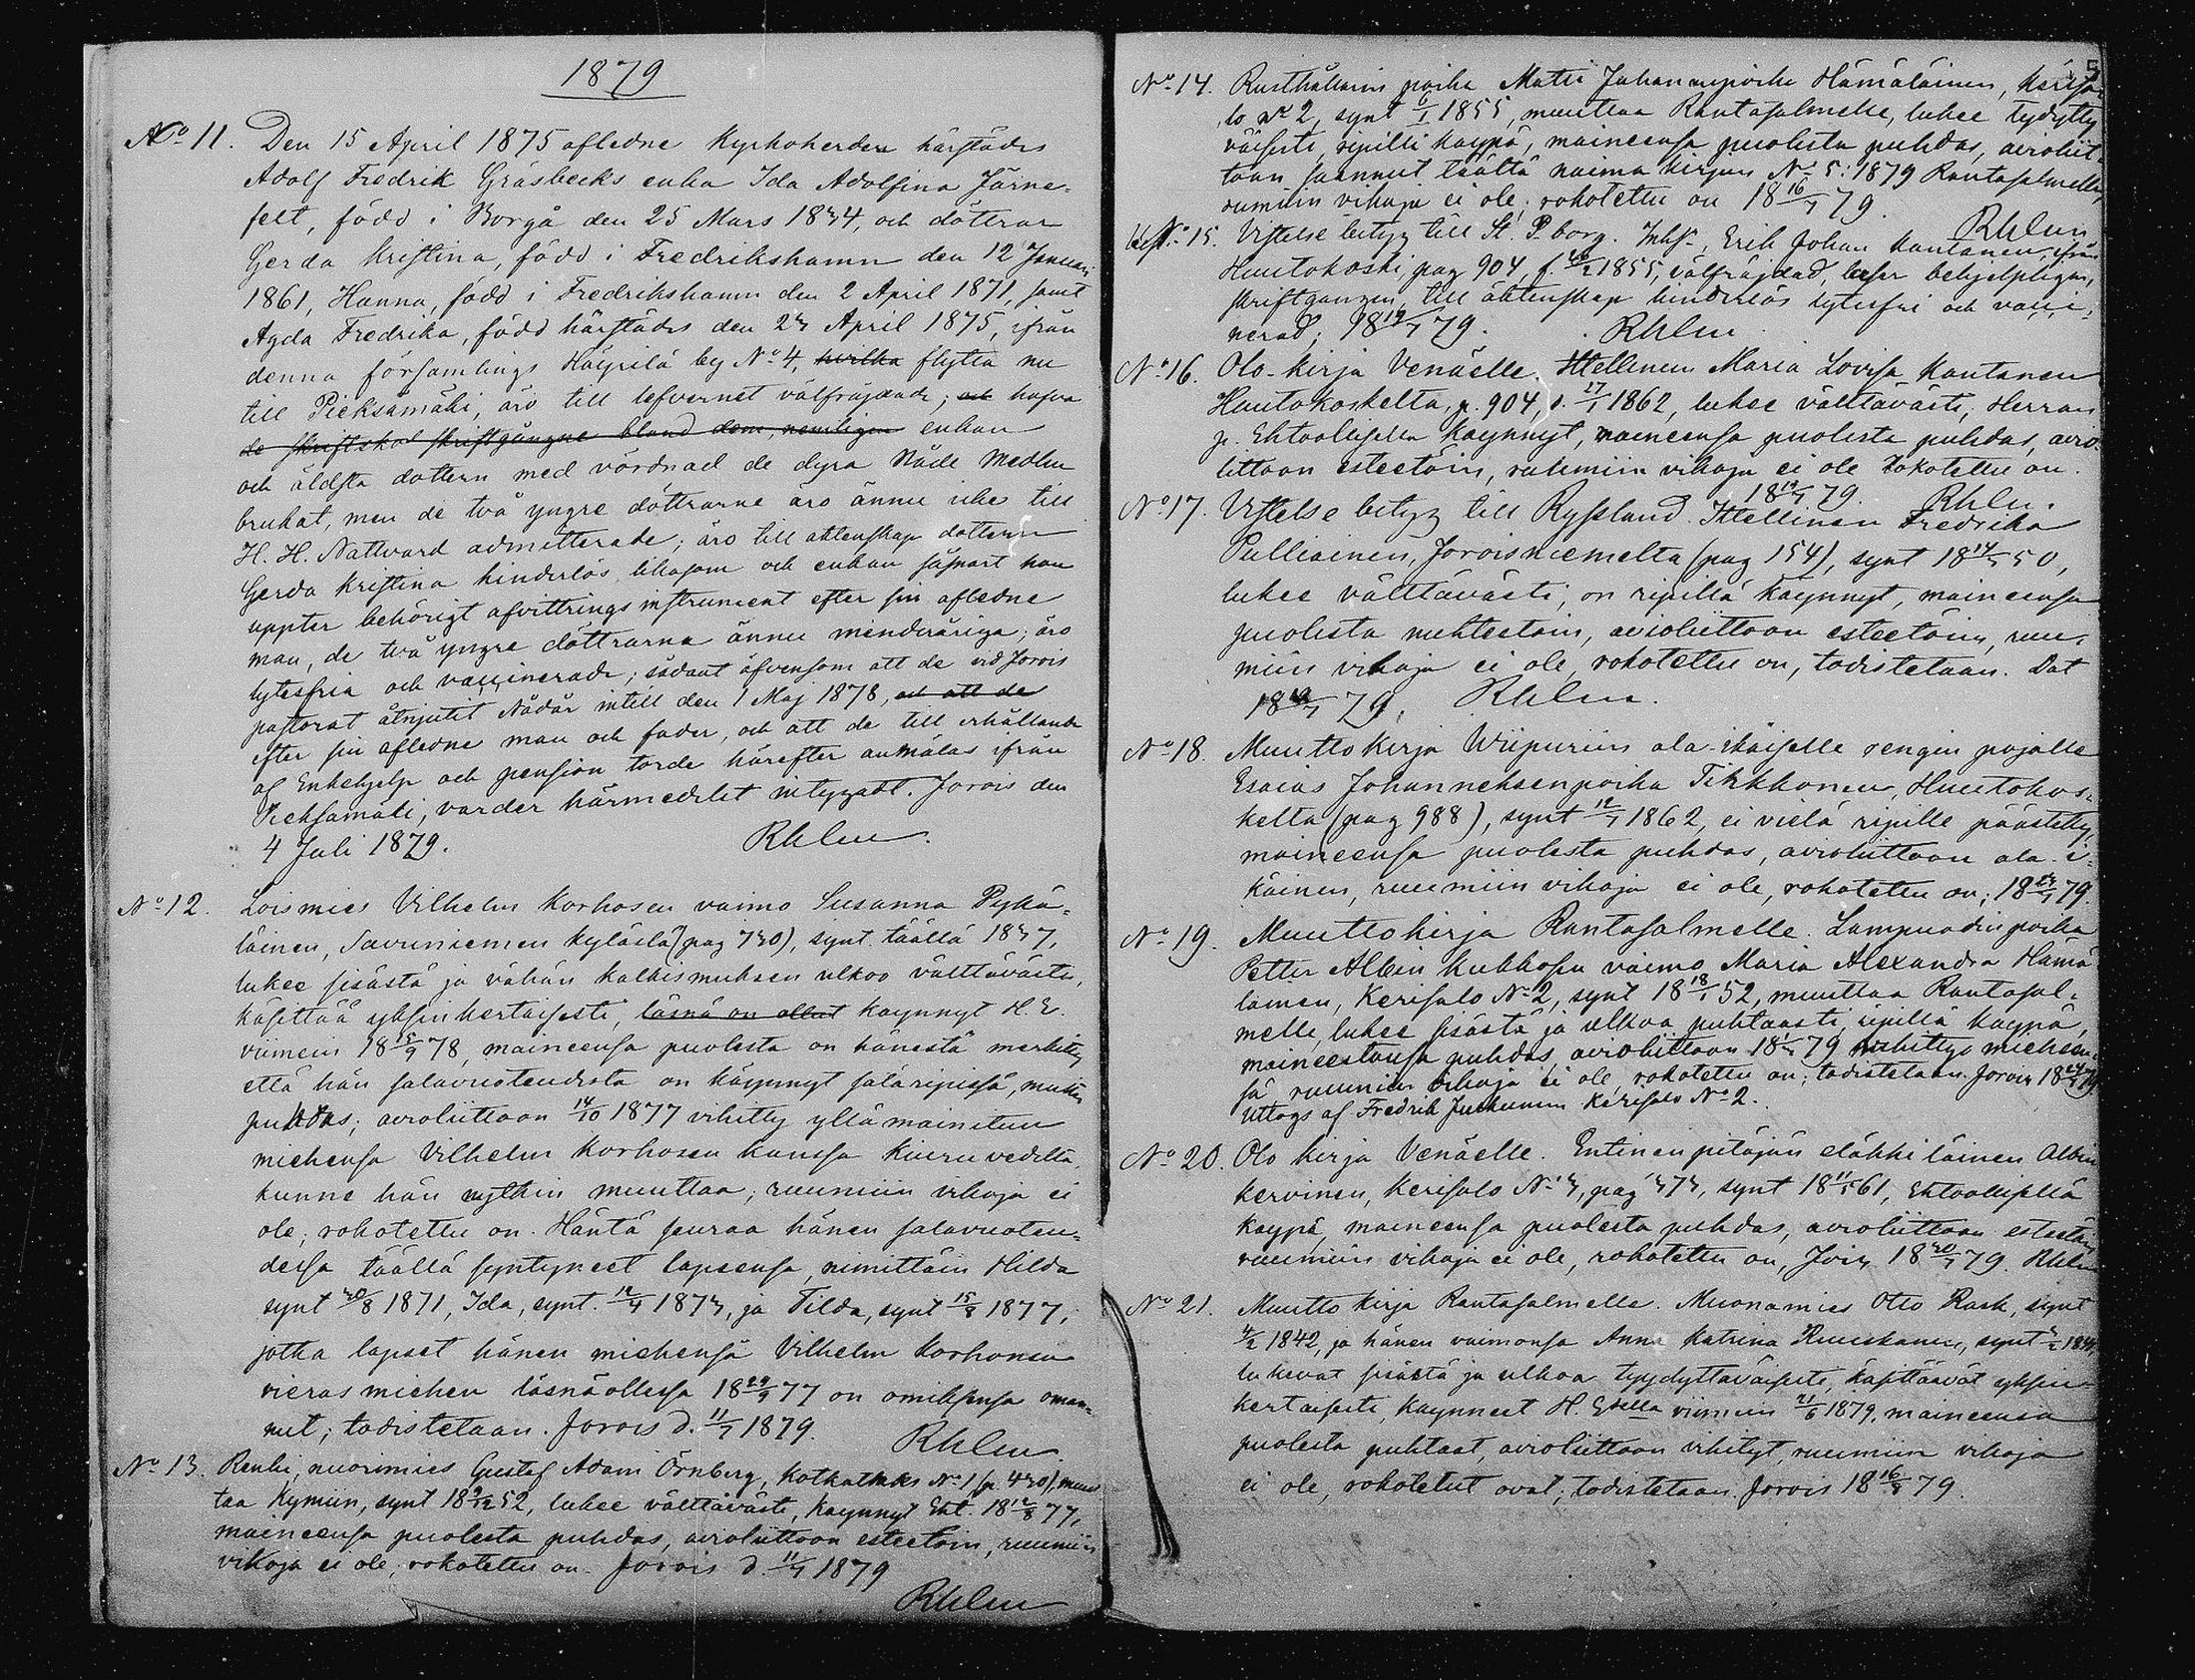 1879
No 11. Den 15 April 1875 afledne Kyrkoherden härstädes
Adolf Fredrik Gråsbecks enka Ida Adolfina Järne-
felt, född i Borgå den 25 Mars 1834, och döttrar
Gerda Kristina, född i Fredrikshamn den 12 Januari
1861, Hanna, född i Fredrikshamn den 2 April 1871, samt
Agda Fredrika, född härstädes den 23 April 1875, ifrån
denna församlings Häyrilä by No 4, hvilka flytta nu
till Pieksämäki, äro till lefvernet välfrejdade; och hafva
de skriftskol skriftgångne bland dem, nemligen enkan
och äldsta dottern med vördnad de dyra Nåde Medlen
brukat, men de två yngre döttrarne äro ännu icke till
H. H. Nattvard admitterade; äro till äktenskap dottern
Gerda Kristina hinderlös likasom och enkan såsnart hon
uppter behörigt afvittrings instrument efter sin afledne
man, de två yngre döttrarna ännu minderåriga; äro
lytesfria och vaccinerade; sådant äfvensom att de vid Jorois
pastorat åtnjutit Nådår intill den 1 Maj 1878, och att de
efter sin aflidne man och fader, och att de till erhållande
af Enkehjelp och pension torde härefter anmälas ifrån
Pieksämäki, varder härmedelst intygadt. Jorois den
4 Juli 1879. Rhlen.
No 12. Loismies Vilhelm Korhosen vaimo Susanna Pykä-
läinen, Savuniemen kylästä (pag 730), synt. täällä 1837,
lukee sisästä ja vähän katkismuksen ulkoo välttävästi,
käsittää yksinkertaisesti, läsnä on ollut kaynnyt H. E.
viimein 18 15/9 78, maineensa puolesta on hänestä merkitty
että hän salavuoteudesta on käynnyt salaripissä, muuten
puhdas; avioliittoon 14/10 1877 vihitty yllämainitun
miehensä Vilhelm Korhosen kanssa Kiuruvedeltä,
kunne hän nytkin muuttaa; ruumiin vikoja ei
ole; rokotettu on. Häntä seuraa hänen salavuoteu-
dessa täällä syntyneet lapsensa, nimittäin Hilda
synt 30/8 1871, Ida, synt. 12/4 1873, ja Tilda, synt 15/8 1877,
jotka lapset hänen miehensä Vilhelm Korhonen
vieras miehen läsnäollessa 18 29/9 77 on omiksensa oman-
nut; todistetaan. Jorois d. 11/7 1879. Rhlen
No 13. Renki, nuorimies Gustaf Adam Örnberg, Kotkatlahti No 1 (p. 430), muut
taa Kymiin, synt 18 9/12 52, lukee välttävästi, kaynnyt Eht. 18 12/8 77,
maineensa puolesta puhdas, avioliittoon esteetöin, ruumiin
vikoja ei ole; rokotettu on. Jorois d. 11/7 1879
Rhlen
5
No 14. Rusthållarin poika Matti Juhananpoika Hämäläinen, Kerisa-
lo No 2, synt 6/1 1855, muuttaa Rantasalmelle, lukee tydytty
väisesti, ripillä kaypä, maineensa puolesta puhdas, avioliit-
toon saannut täältä naima kirjan No 5: 1879 Rantasalmelle,
rumiin vikoja ei ole; rokotettu on 18 16/7 79. Rhlen
No 15. Vistelse betyg till St. P.borg. Inhs., Erik Johan Kautanen, ifrån
Huutokoski, pag 904, f. 1855, välfräjdad, läser behjelpligen,
skriftgången, till äktenskap hinderlös lytesfri och vacci-
nerad; 18 19/7 79. Rhlen
No 16. Olo-kirja Venäelle. Ittellinen Maria Lovisa Kautanen
Huutokoskelta, p. 904, s. 17/1 1862, lukee välttävästi, Herran
p. Ehtoollisella kaynnyt, maineensa puolesta puhdas, avio-
littoon esteetöin, ruhmiin vikoja ei ole rokotettu on.
18 19/7 79. Rhlen.
No 17. Vistelse betyg till Ryssland. Ittellinen Fredrika
Pulliainen, Joroisniemeltä (pag 154), synt 18 14/5 50,
lukee välttävästi, on ripillä käynnyt, maineensa
puolesta nuhteetoin, avioliittoon esteetöin, ruu-
miin vikoja ei ole, rokotettu on, todistetaan. Dat
18 19/7 79, Rhlen.
No 18. Muuttokirja Wiipuriin ala-ikäiselle rengin pojalle
Esaias Johanneksenpoika Tikkkonen, Huutokos-
kelta (pag 988), synt 12/7 1862, ei vielä ripille päästetty,
maineensa puolesta puhdas, avioliittoon ala-i-
käinen, ruumiin vikoja ei ole, rokotettu on; 18 23/7 79.
No 19. Muuttokirja Rantasalmelle. Lampuodin poika
Petter Albin Kukkosen vaimo Maria Alexandra Hämä
läinen, Kerisalo No 2, synt 18 18/1 52, muuttaa Rantasal-
melle, lukee sisästä ja ulkoa puhtaasti, ripillä kaypä,
maineestansa puhdas, avioliittoon 79 vihitty miehen-
sä ruumiin vikoja ei ole, rokotettu on; todistetaan. Jorois 18 24/7 79
Uttogs af Fredrik Juskunen Kerisalo No 2.
No 20. Olo kirja Venäelle. Entinen pitäjän eläkkiläinen Albin
Kervinen, Kerisalo No 3, pag 373, synt 18 11/5 61, Ehtoollisella
kaypä, maineensa puolesta puhdas, avioliittoon esteetöin
ruumiin vikoja ei ole, rokotettu on, Jois 18 30/7 79. Rhlen
No 21. Muutto kirja Rantasalmelle. Muonamies Otto Rask, synt
4/2 1842, ja hänen vaimonsa Anna Katrina Ruuskanen, synt
lukevat sisästä ja ulkoa tyydyttäväisesti, käsittäävät yksin-
kertaisesti, kaynneet H. Eholla viimein 21/6 1879, maineensa
puolesta puhtaat, avioliittoon vihityt, ruumiin vikoja
ei ole, rokotetut ovat; todistetaan. Jorois 18 16/8 79.